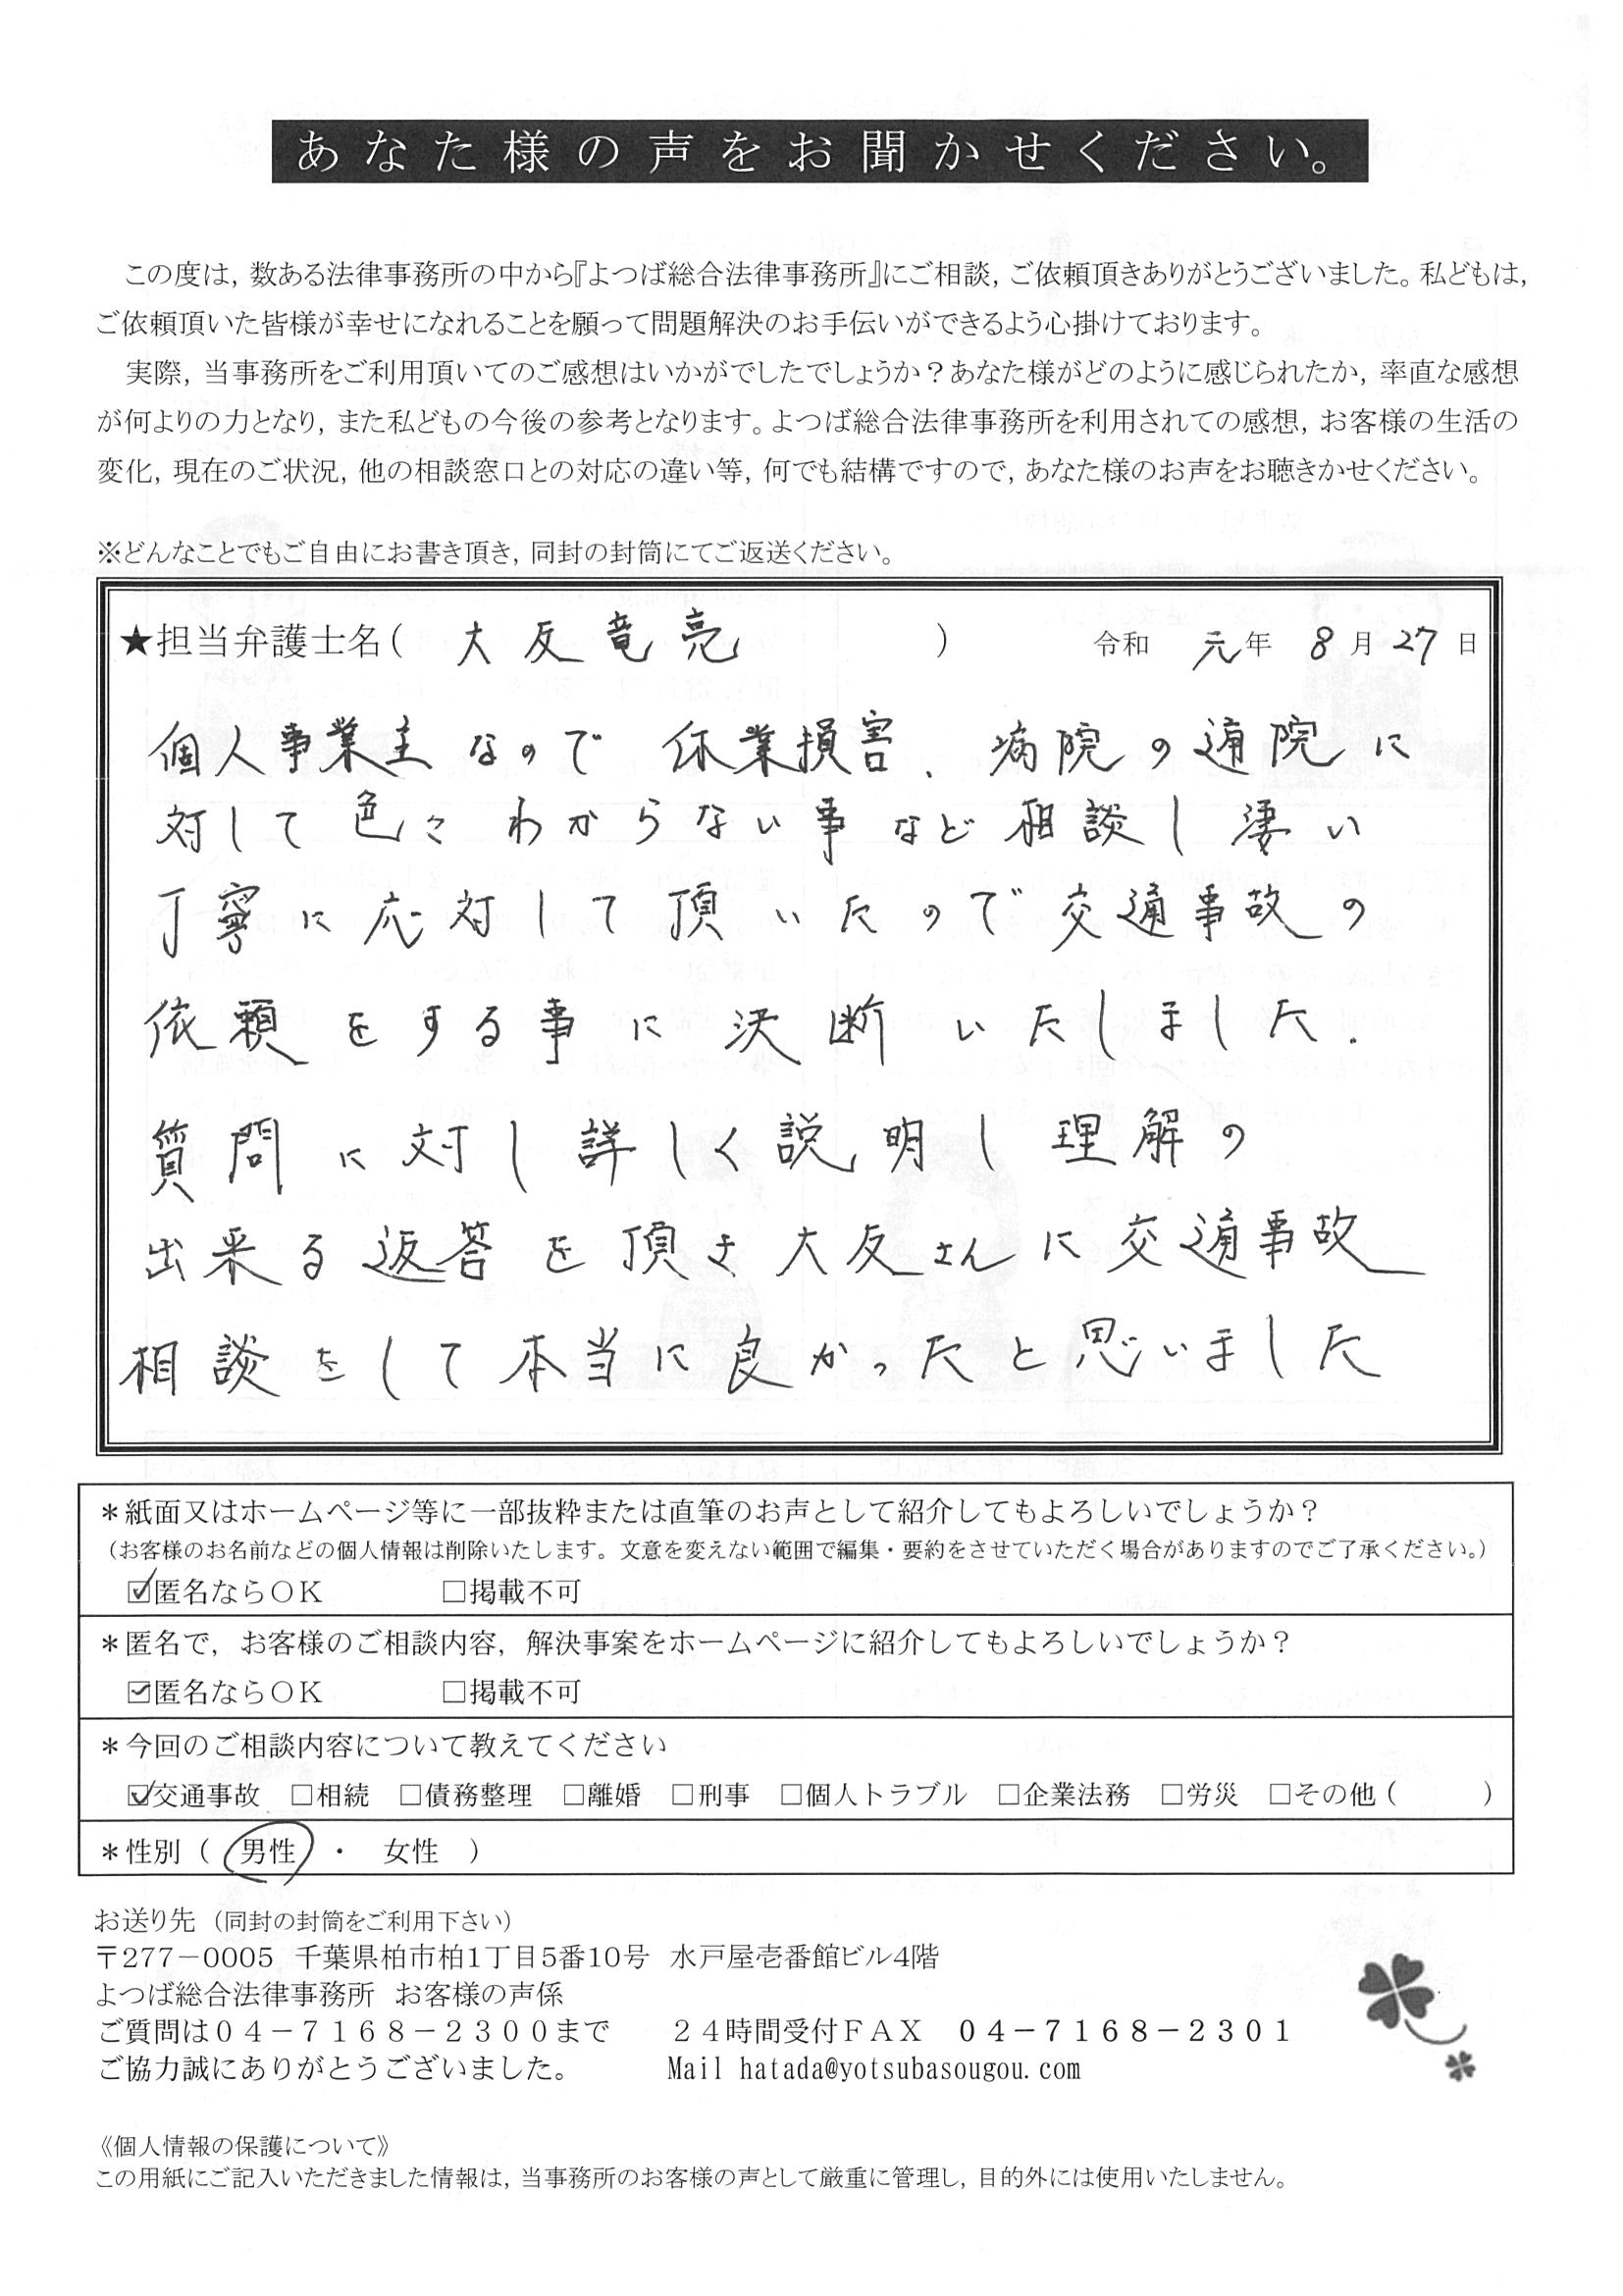 あなた様の声をお聞かせください。
この度は，数ある法律事務所の中から『よつば総合法律事務所』にご相談，ご依頼頂きありがとうございました。私どもは，
ご依頼頂いた皆様が幸せになれることを願って問題解決のお手伝いができるよう心掛けております。
実際，当事務所をご利用頂いてのご感想はいかがでしたでしょうか？あなた様がどのように感じられたか，率直な感想
が何よりの力となり，また私どもの今後の参考となります。よつば総合法律事務所を利用されての感想，お客様の生活の
変化，現在のご状況，他の相談窓口との対応の違い等，何でも結構ですので，あなた様のお声をお聴きかせください。
※どんなことでもご自由にお書き頂き，同封の封筒にてご返送ください。
★担当弁護士名（ 大友竜亮 ） 令和 元年 8月27日
個人事業主なので 休業損害、病院の通院に
対して色々わからない事など相談し凄い
丁寧に応対して頂いたので交通事故の
依頼をする事に決断いたしました.
質問に対し詳しく説明し理解の
出来る返答を頂き大友さんに交通事故
相談をして本当に良かったと思いました
＊紙面又はホームページ等に一部抜粋または直筆のお声として紹介してもよろしいでしょうか？
（お客様のお名前などの個人情報は削除いたします。文意を変えない範囲で編集・要約をさせていただく場合がありますのでご了承ください。）
☑匿名ならＯＫ □掲載不可
＊匿名で，お客様のご相談内容，解決事案をホームページに紹介してもよろしいでしょうか？
☑匿名ならＯＫ □掲載不可
＊今回のご相談内容について教えてください
☑交通事故 □相続 □債務整理 □離婚 □刑事 □個人トラブル □企業法務 □労災 □その他（ ）
＊性別（ 男性 ・ 女性 ）
お送り先（同封の封筒をご利用下さい）
〒277－0005 千葉県柏市柏1丁目5番10号 水戸屋壱番館ビル4階
よつば総合法律事務所 お客様の声係
ご質問は０４－７１６８－２３００まで ２４時間受付ＦＡＸ ０４－７１６８－２３０１
ご協力誠にありがとうございました。 Mail hatada@yotsubasougou.com
《個人情報の保護について》
この用紙にご記入いただきました情報は，当事務所のお客様の声として厳重に管理し，目的外には使用いたしません。